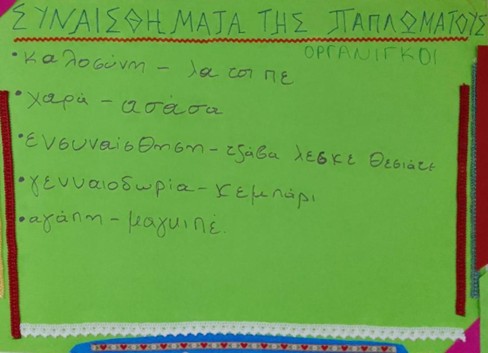 ΣΥΝΑΙΣΘΗΜΑΤΑ ΤΗΣ ΠΑΠΛΩΜΑΤΟΥΣ
ΟΡΓΑΝΙΓΚΟΙ
• καλοσύνη - λατσιπε
• χαρά - ασάσα
• ενσυναίσθηση - τζάβα λεσκε θεσιάτε
• γενναιοδωρία - κεμπάρι
• αγάπη - μαγκιπέ.